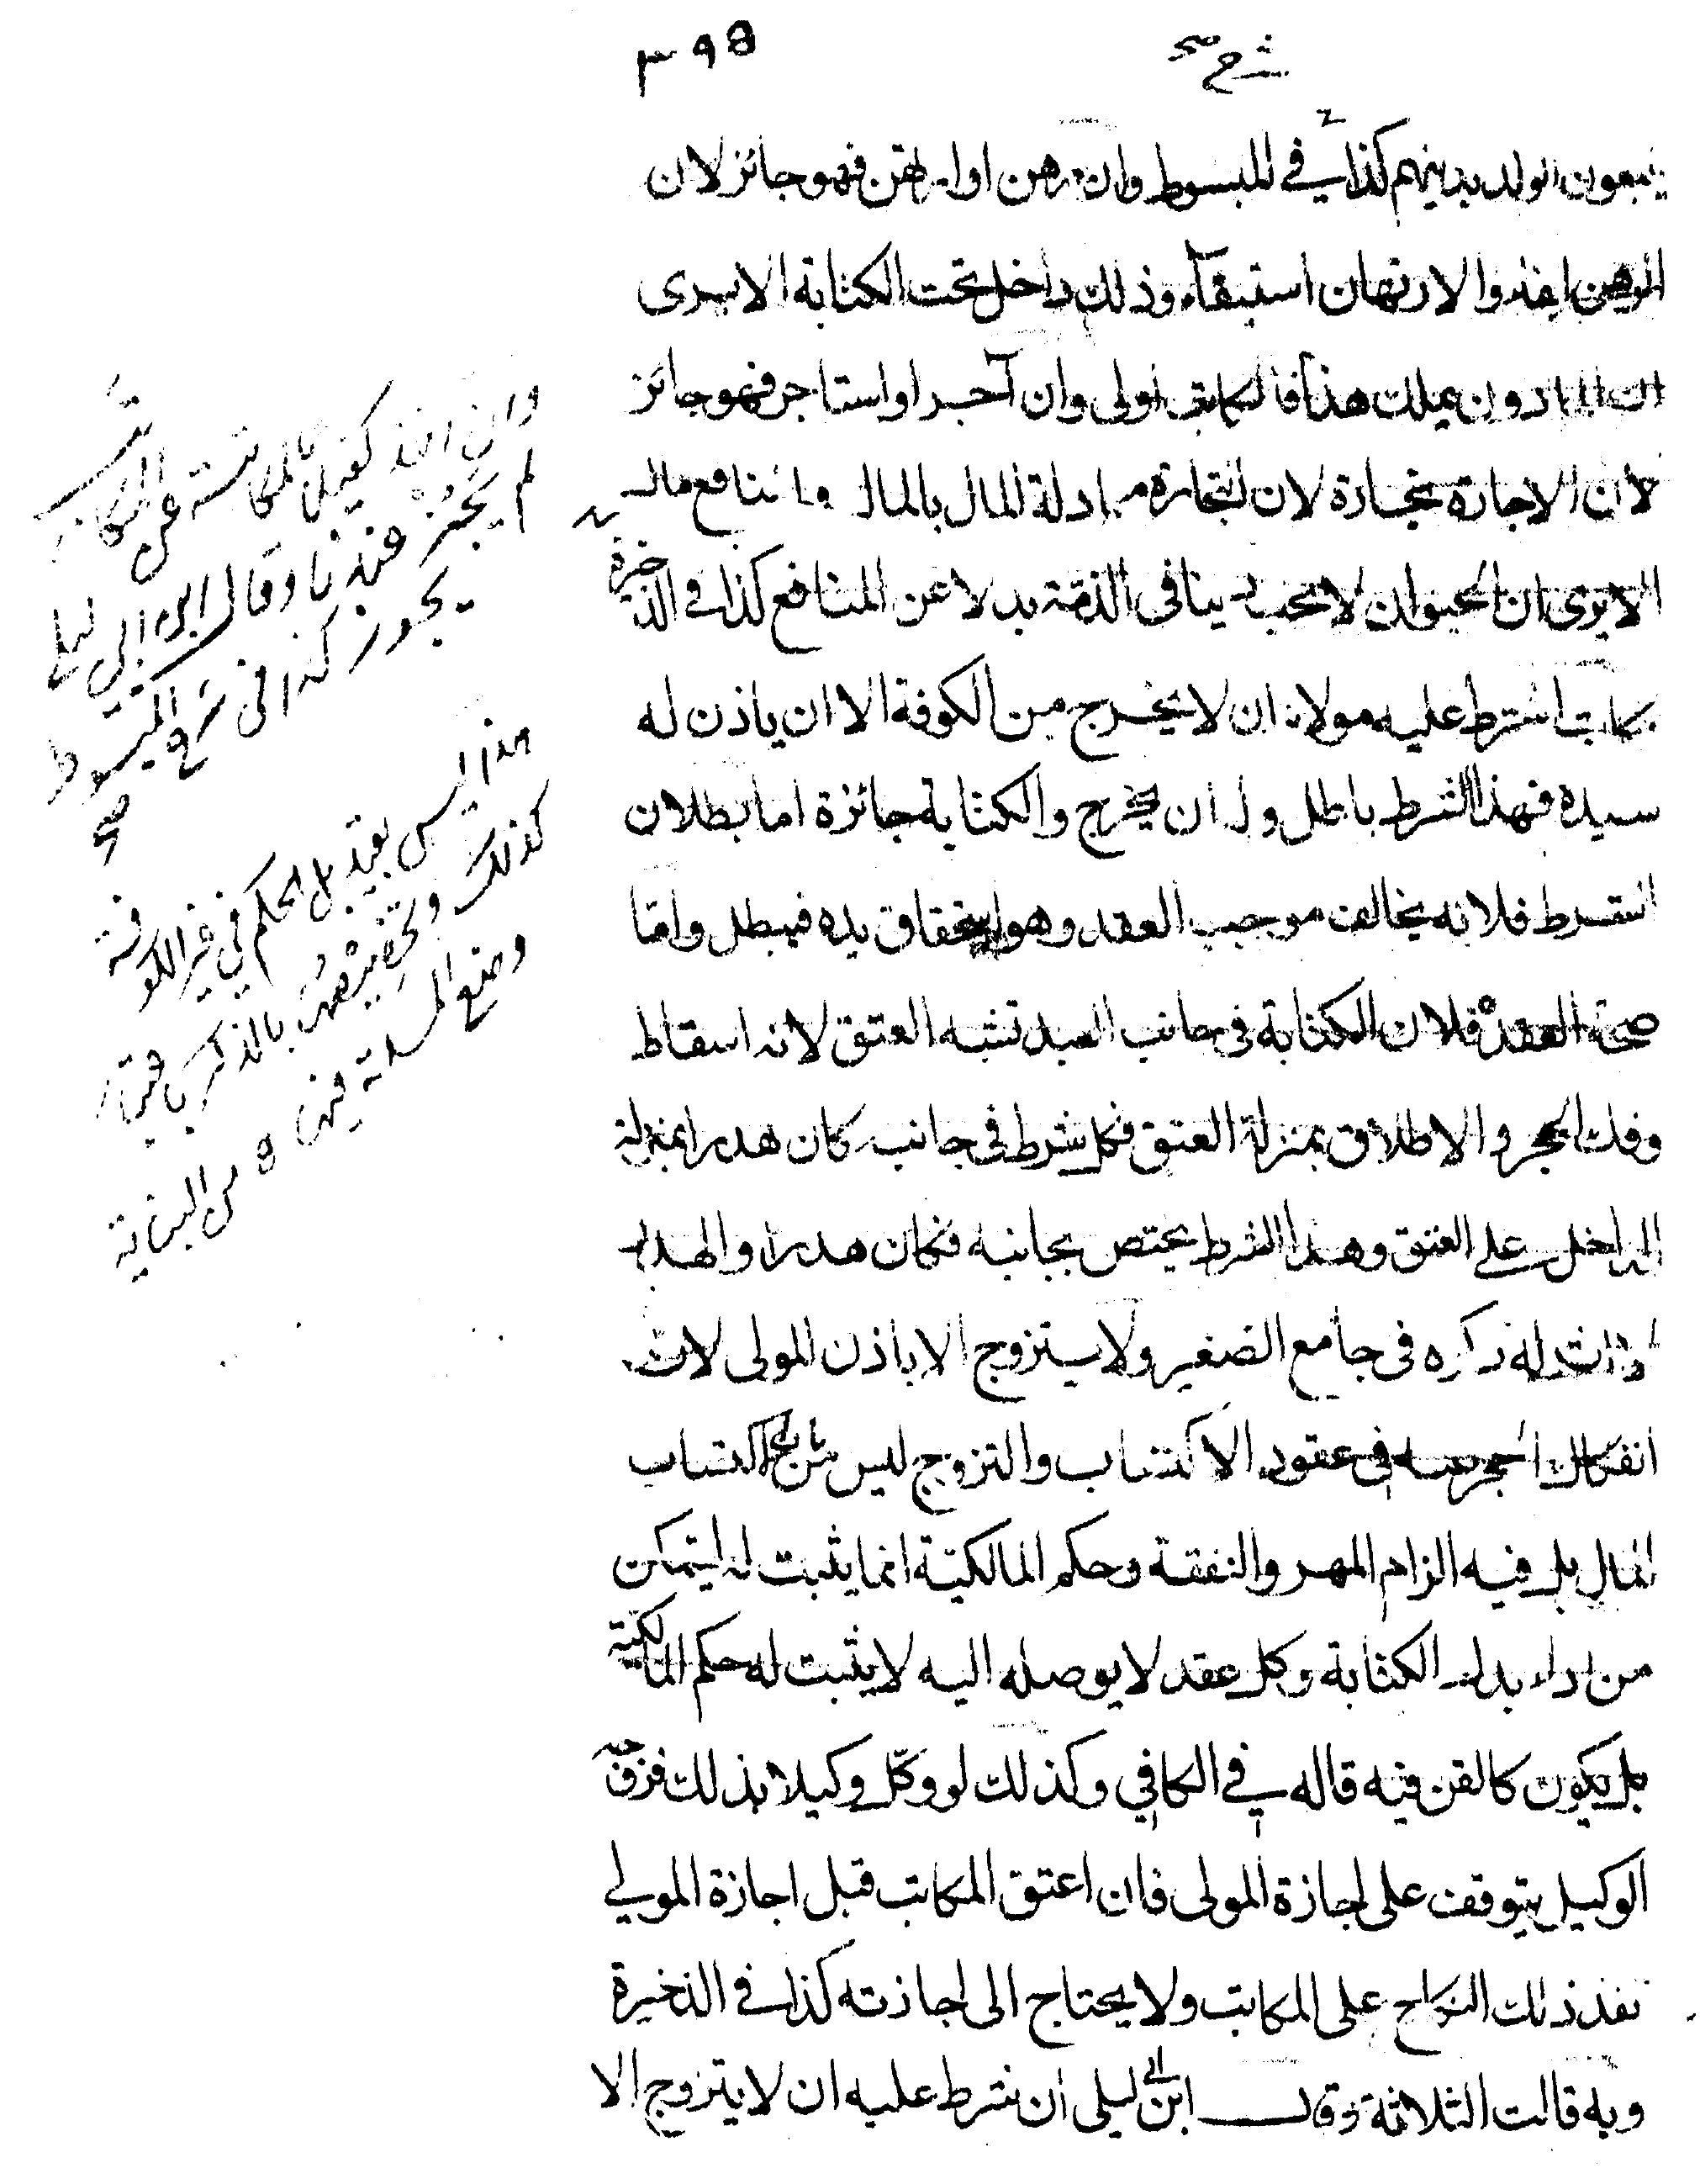 ٣٩٥
شرح
يتبعون الولد بدينهم كذا في المبسوط وان رهن او ارتهن فهو جائز لان
الرهن ايفاء والارتهان استيفاء وذلك داخل تحت الكتابة الا يرى
ان الماذون يملك هذا فالمكاتب اولى وان آجر او استاجر فهو جائز
لان الاجارة تجارة لان التجارة مبادلة المال بالمال والمنافع مال
الا يرى ان الحيوان لا يجب دينا في الذمة بدلا عن المنافع كذا في الذخيرة
مكاتب اشترط عليه مولاه ان لا يخرج من الكوفة الا ان ياذن له
سيده فهذا الشرط باطل وله ان يخرج والكتابة جائزة اما بطلان
الشرط فلانه يخالف موجب العقد وهو استحقاق يده فيبطل واما
صحة العقد فلان الكتابة في جانب العبد تشبه العتق لانه اسقاط
وفك الحجر والاطلاق بمنزلة العتق فكل شرط في جانبه كان هدرا بمنزلة
الداخل على العتق وهذا الشرط يختص بجانبه فكان هدرا والهدر
له ذكره في جامع الصغير ولا يتزوج الا باذن المولى لان
انفكاك الحجر عنه في عقود الاكتساب والتزوج ليس من باب اكتساب
المال بل فيه الزام المهر والنفقة وحكم المالكية انما يثبت له ليتمكن
من اداء بدل الكتابة وكل عقد لا يوصله اليه لا يثبت له حكم المالكية
بل يكون كالقن فيه قاله في الكافي وكذلك لو وكل وكيلا بذلك فزوجه
الوكيل يتوقف على اجازة المولى فان اعتق المكاتب قبل اجازة المولى
نفذ ذلك النكاح على المكاتب ولا يحتاج الى اجازته كذا في الذخيرة
وبه قالت الثلاثة وقال ابن ابي ليلى ان شرط عليه ان لا يتزوج الا
وان اخذ كفيلا بالمكاتبة عن المكاتب
لم يجز عندنا وقال ابن ابي ليلى
يجوز كذا في شرح المبسوط
هذا ليس بقيد بل الحكم في غير الكوفة
كذلك وتخصيصها بالذكر باعتبار
وضع المسئلة فيها ٥ من البناية